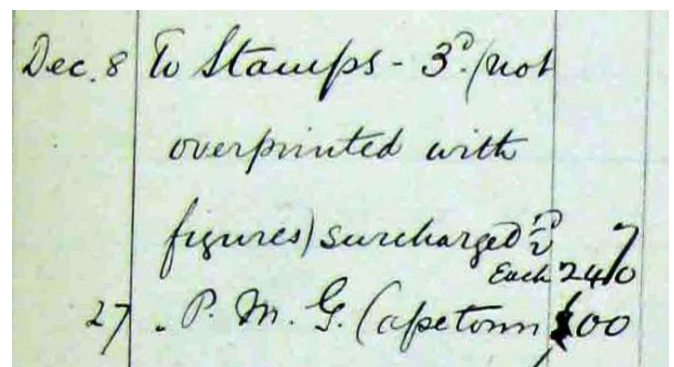 Dec. 8 To Stamps - 3d. (not
overprinted with
figures) surcharged ½d
Each 240
27 " P. M. G. Capetown 100